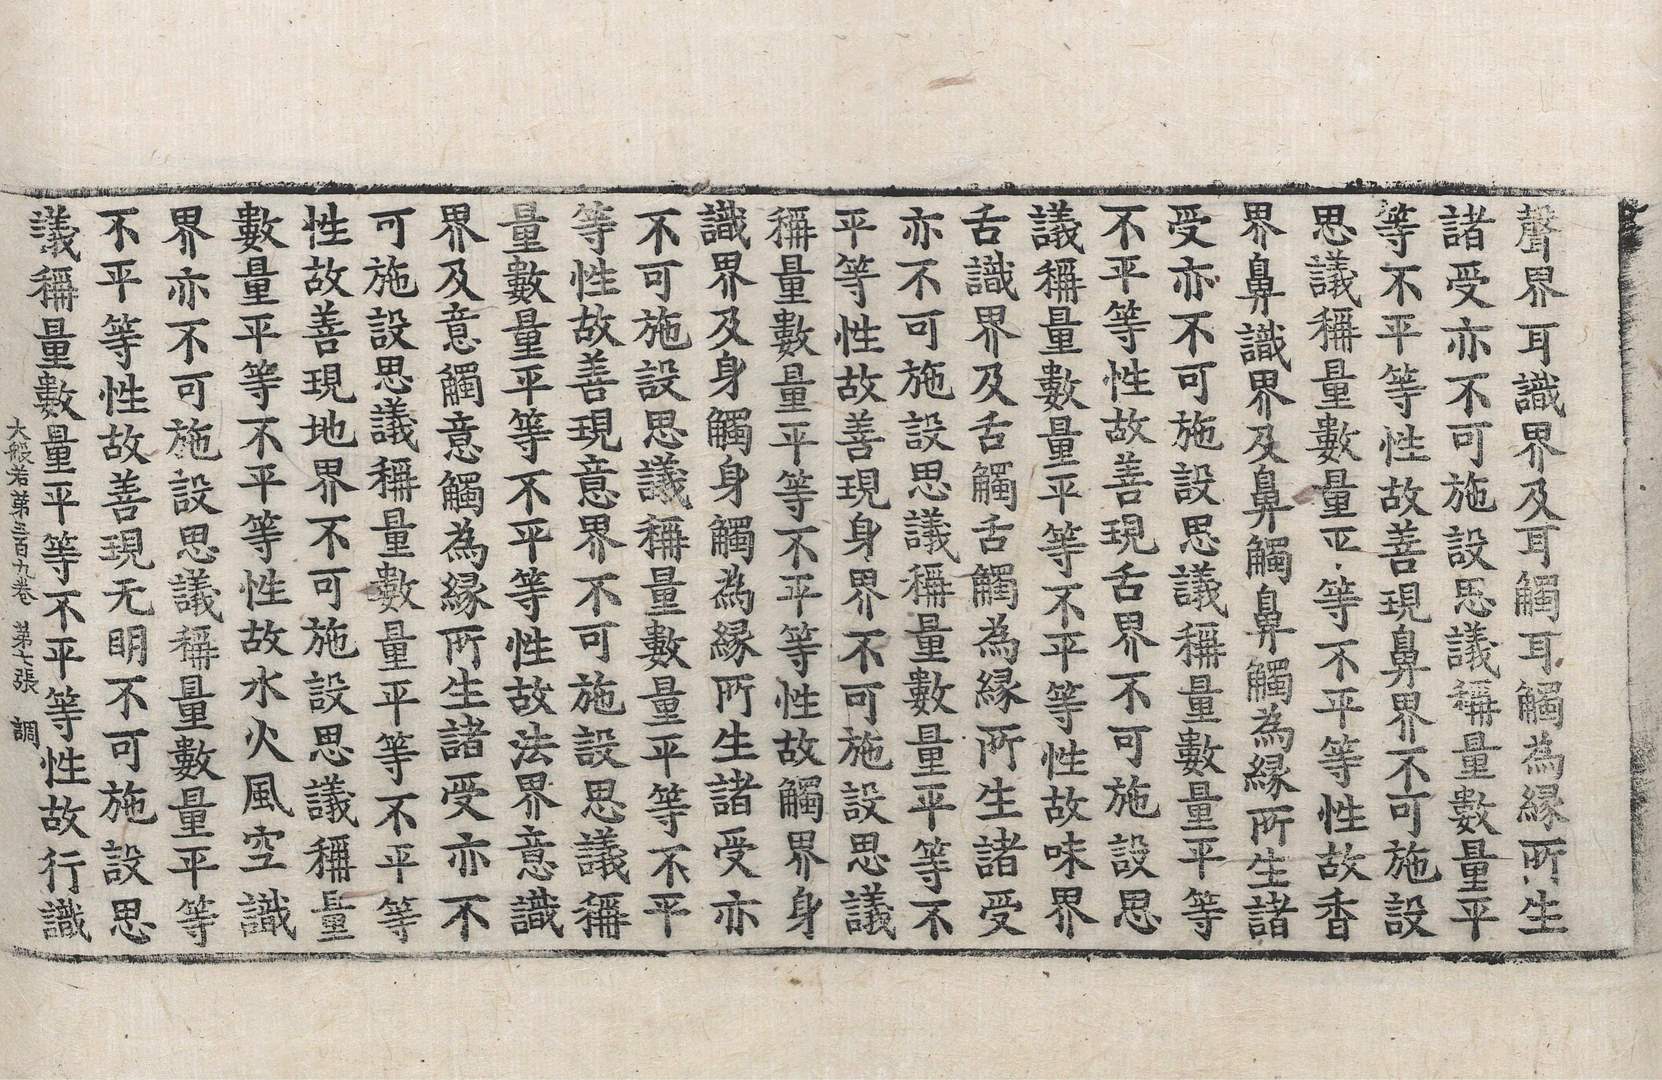 聲界耳識界及耳觸耳觸為縁所生
諸受亦不可施設思議稱量數量平
等不平等性故善現鼻界不可施設
思議稱量數量平等不平等性故香
界鼻識界及鼻觸鼻觸為縁所生諸
受亦不可施設思議稱量數量平等
不平等性故善現舌界不可施設思
議稱量數量平等不平等性故味界
舌識界及舌觸舌觸為縁所生諸受
亦不可施設思議稱量數量平等不
平等性故善現身界不可施設思議
稱量數量平等不平等性故觸界身
識界及身觸身觸為縁所生諸受亦
不可施設思議稱量數量平等不平
等性故善現意界不可施設思議稱
量數量平等不平等性故法界意識
界及意觸意觸為縁所生諸受亦不
可施設思議稱量數量平等不平等
性故善現地界不可施設思議稱量
數量平等不平等性故水火風空識
界亦不可施設思議稱量數量平等
不平等性故善現无明不可施設思
議稱量數量平等不平等性故行識
大般若第三百九卷 第七張 調